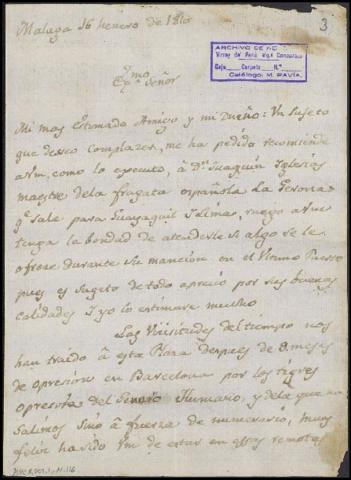 Malaga 16 henero de 1810
3
ARCHIVO DE
Virrey del Perú Mqs Concordia
Caja Carpeta N.º
Catálogo: M. PAVÍA.
Exmo Señor
Mi mas Estimado Amigo y mi Dueño: Un sujeto
que deseo Complazer, me ha pedido recomiende
a Vm, como lo executo, â Dn Juaquin Iglesias
maestre dela fragata española La
qe Sale para Guayaquil Lima, ruego a Vm
tenga la bondad de atenderle si algo se le
ofrece durante su mancion en el
pues es sugeto de todo aprecio por sus buenas
calidades I yo lo estimare mucho
Las Vicisitudes del tiempo nos
han traido â esta Plaza despues de 8 meses
de opresion en Barcelona por los tigres
opresores del Genero Humano, y dela que
salimos sinó â fuerza de numerario, mui
feliz ha sido Vm de estar en essas remotas